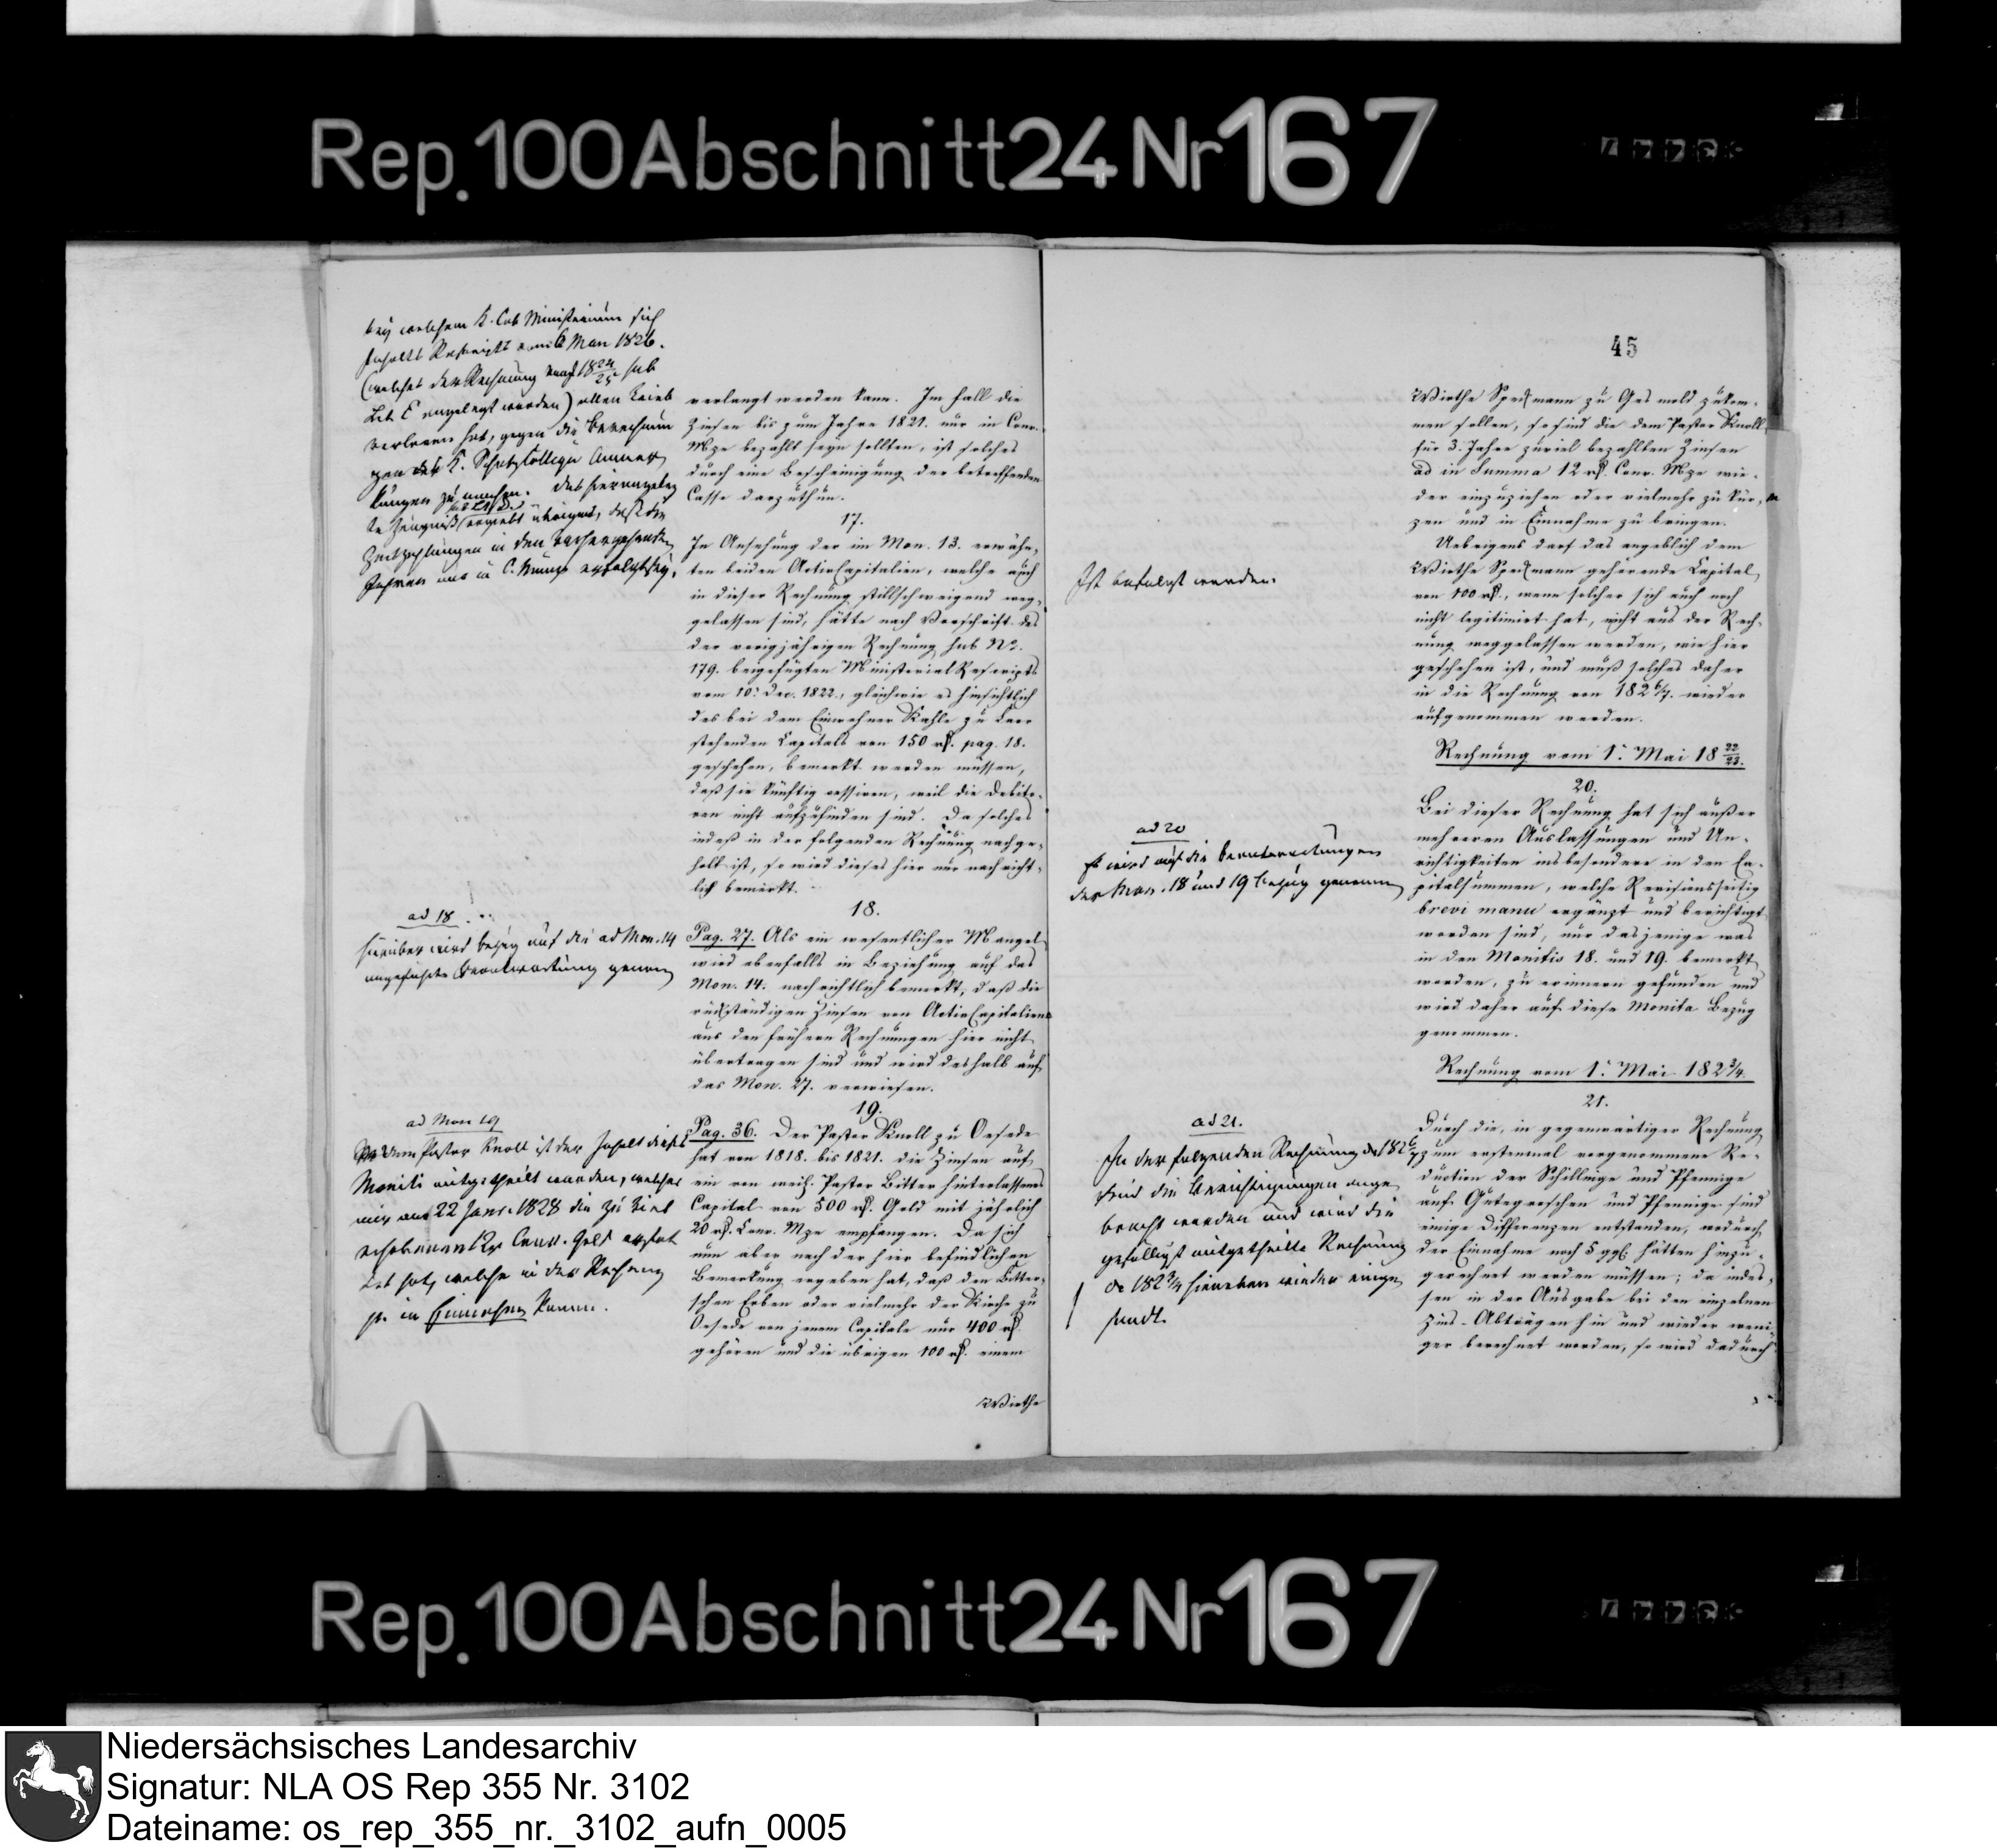 Rep. 100 Abschnitt 24 Nr 167
bey welchem K. Cab Ministerium sich
Inhalts Rescripts vom 6 Man 1826.
(welches der Rechnung von 1824/25 sub
Lit E angelegt worden)
verloren hat, gegen die
gen des K. Schatz Collegii Anmer
kungen zu machen. das hierangeleg
sub Lit D.
te Zeugniß ergiebt übrigens, daß die
Zinszahlungen in den vorhergehenden
Jahren nur in C. Münze erfolgt sey.
ad 18
hierüber wird bezug auf die ad Mon. 14
angeführte Beantwortung genom
ad Mon 19
dem Pastor Knoll ist der Inhalt dieses
Moniti mitgetheilt worden, welcher
mir am 22 Janr. 1828 die zu viel
erhobenen 12 Conv. Geld erstat
tet hat, welche in der Rechnung
p. in Einnahme kommen.
verlangt werden kann. Im Fall die
Zinsen bis zum Jahre 1821. nur in Conv.
Mze bezahlt seyn sollten, ist solches
durch eine Bescheinigung der betreffenden
Casse darzuthun.
17.
In Ansehung der im Mon. 13. erwähn-
ten beiden ActivCapitalien, welche auch
in dieser Rechnung stillschweigend weg-
gelassen sind, hätte nach Vorschrift des
der vorigjährigen Rechnung sub No.
179. beigefügten MinisterialRescripts
vom 10. Dec. 1822., gleichwie es hinsichtlich
des bei dem Einwohner Kahle zu Laer
stehenden Capitals von 150 rß. pag. 18.
geschehen, bemerkt werden müssen,
daß sie künftig cessiren, weil die Debito-
ren nicht aufzufinden sind. Da solches
indeß in der folgenden Rechnung nachge-
holt ist, so wird dieses hier nur nachricht-
lich bemerkt.
18.
Pag. 27. Als ein wesentlicher Mangel
wird ebenfalls in Beziehung auf das
Mon. 14. nachrichtlich bemerkt, daß die
rückständigen Zinsen von ActivCapitalien
aus den frühern Rechnungen hier nicht
übertragen sind und wird deshalb auf
das Mon. 27. verwiesen.
19.
Pag. 36. Der Pastor Knoll zu Oesede
hat von 1818. bis 1821. die Zinsen auf
ein von weil. Pastor Bitter hinterlassenes
Capital von 500 rß. Gold mit jährlich
20 rß. Conv. Mze empfangen. Da sich
nun aber nach der hier befindlichen
Bemerkung ergeben hat, daß den Bitter-
schen Erben oder vielmehr der Kirche zu
Oesede von jenem Capitale nur 400 rß.
gehören und die übrigen 100 rß. einem
Wirthe
45
Ist befolgt worden.
ad 20
Es wird auf die Beantwortungen
der Mon. 18 und 19 bezug genomm
ad 21.
In der folgenden Rechnung de 1826/7
sind die Berichtigungen ange
bracht worden und wird die
gefälligst mitgetheilte Rechnung
de 1823/4 hierneben wieder einge
sandt.
Wirthe Speckmann zu Gesmold zukom-
men sollen, so sind die dem Pastor Knoll
für 3. Jahre zuviel bezahlten Zinsen
ad in Summa 12 rß. Conv. Mze wie-
der einzuziehen oder vielmehr zu kür-
zen und in Einnahme zu bringen.
Uebrigens darf das angeblich dem
Wirthe Speckmann gehörende Capital
von 100 rß., wenn solcher sich auch noch
nicht legitimirt hat, nicht aus der Rech-
nung weggelassen werden, wie hier
geschehen ist, und muß solches daher
in die Rechnung von 1826/7. wieder
aufgenommen werden.
Rechnung vom 1. Mai 1822/23.
20.
Bei dieser Rechnung hat sich außer
mehreren Auslassungen und Un-
richtigkeiten insbesondere in den Ca-
pitalsummen, welche Revisionsseitig
brevi manu ergänzt und berichtigt
worden sind, nur dasjenige was
in den Monitis 18. und 19. bemerkt
worden, zu erinnern gefunden und
wird daher auf diese Monita Bezug
genommen.
Rechnung vom 1. Mai 1823/4.
21.
Durch die, in gegenwärtiger Rechnung
zum erstenmal vorgenommene Re-
duction der Schillinge und Pfennige
auf Gutegroschen und Pfennige sind
einige Differenzen entstanden, wodurch
der Einnahme noch 5 ggl. hätten hinzu-
gerechnet werden müssen; da indes-
sen in der Ausgabe bei den einzelnen
Zins-Abträgen hin und wieder weni-
ger berechnet worden, so wird dadurch
Rep. 100 Abschnitt 24 Nr 167
Niedersächsisches Landesarchiv
Signatur: NLA OS Rep 355 Nr. 3102
Dateiname: os_rep_355_nr._3102_aufn_0005